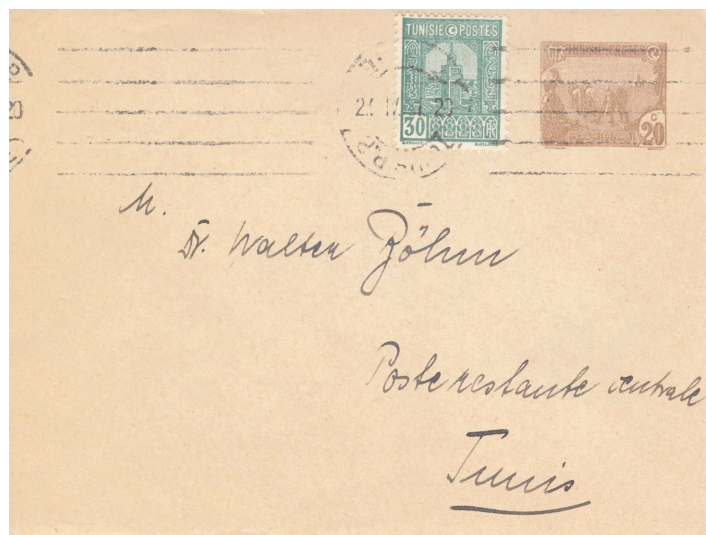 TUNISIE POSTES
30
20
M.
Dr. Walter Böhm
Poste restante centrale
Tunis